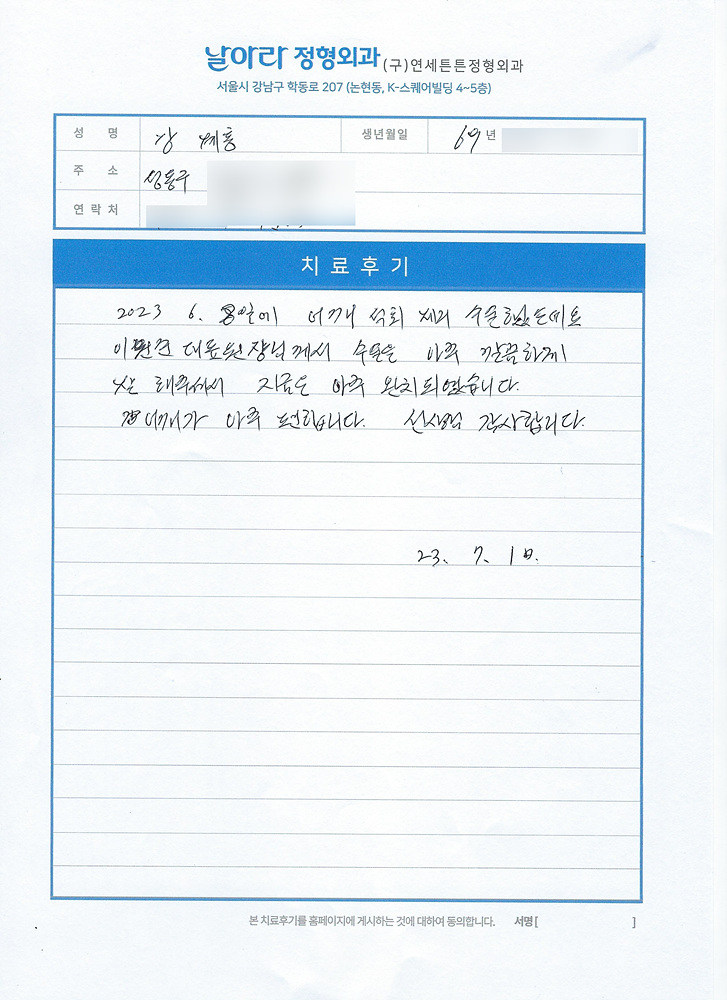 날아라 정형외과 (구)연세튼튼정형외과
서울시 강남구 학동로 207 (논현동, K-스퀘어빌딩 4~5층)
성 명 강 세홍 생년월일 69년
주 소 성동구
연락처
치료후기
2023 6. 8일에 어깨 석회 제거 수술했는데요
대표원장님께서 수술을 아주 깔끔하게
해주셔서 지금은 아주 완치되었습니다.
어깨가 아주 편합니다. 선생님 감사합니다.
23. 7. 1 일.
본 치료후기를 홈페이지에 게시하는 것에 대하여 동의합니다. 서명 [ ]